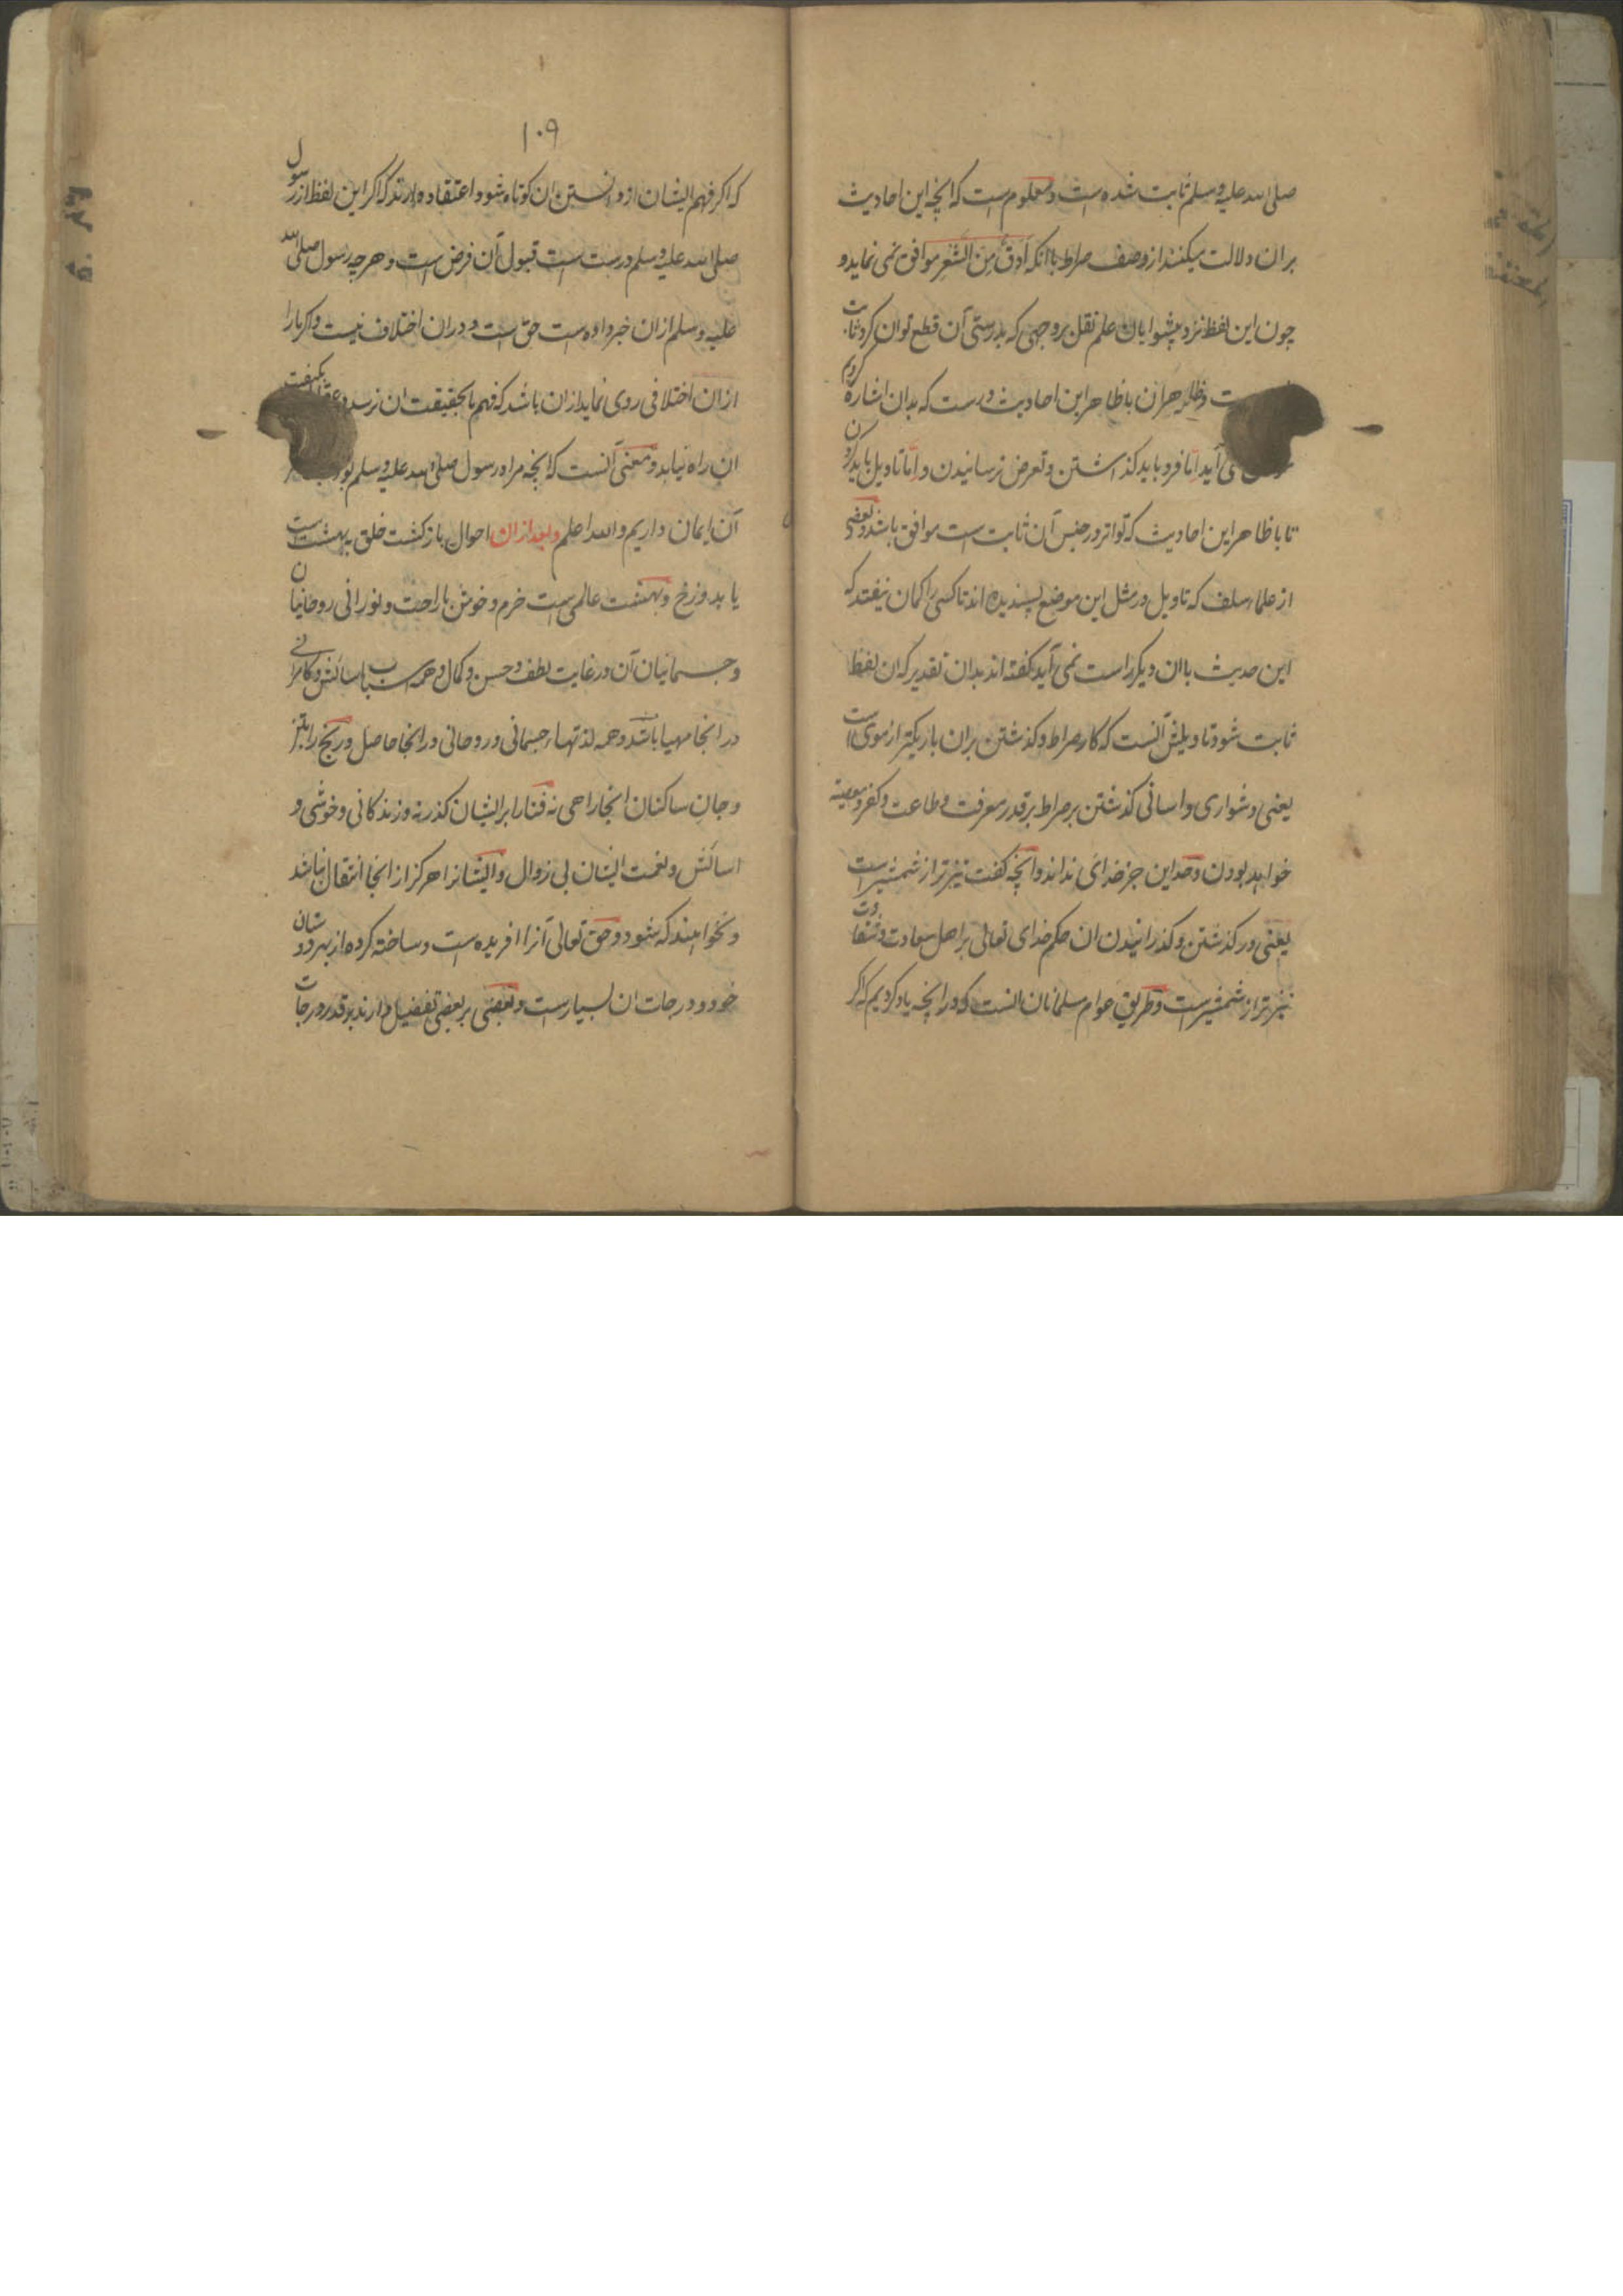 صلی الله علیه و سلم ثابت شده است و معلوم است که انچه این احادیث
بران دلالت میکنند از وصف صراط باانکه اَدَقُّ مِنَ الشَّعرِ موافق نمی نماید و
چون این لفظ نزد پیشوایان علم نقل بر وجهی که بدرستی آن قطع توان کرد ثابت
ست و ظاهران با ظاهر این احادیث درست که بدان اشاره کردیم
می آید اما فرو باید گذاشتن و تعرض نرسانیدن و اما تاویل باید کردن
تا با ظاهر این احادیث که تواتر در جنس آن ثابت است موافق باشد و بعضی
از علماء سلف که تاویل در مثل این موضع پسندیده اند تا کسی را کمان نیفتد که
این حدیث باان دیکر راست نمی آید کفته اند بدان تقدیر که ان لفظ
ثابت شود تاویلش آنست که کار صراط و کذشتن بران باریکتر از موی است
یعنی دشواری و اسانی کذشتن بر صراط بر قدر معرفت و طاعت و کفر و معصیة
خواهد بودن و حد این جز خدای نداند و انچه کفت تیزتر از شمشیر است
یعنی در کذشتن و کذرانیدن ان حکم خدای تعالی بر اهل سعادت و شقاوت
تیزتر از شمشیر است و طریق عوام مسلمانان انست که در انچه یاد کردیم که اکر
۱۰۹
که اکر فهم ایشان از دانستن ان کوتاه شود اعتقاد دارند که اکر این لفظ از رسول
صلی الله علیه و سلم درست است قبول آن فرض است و هرچه رسول صلی الله
علیه و سلم ازان خبر داده است حق است و دران اختلاف نیست و اکر مارا
ازان اختلافی روی نماید ازان باشد که فهم ما بحقیقت ان نرسد و عقل بکیفیت
ان راه نیابد و معنی آنست که انچه مراد رسول صلی الله علیه و سلم بود
آن ایمان داریم والله اعلم وبعد ازان احوال بازکشت خلق ببهشت است
یا بدوزخ و بهشت عالمی است خرم و خوش باراحت و نورانی روحانیان
و جسمانیان آن در غایت لطف و حسن و کمال و همه اسباب اسائش و کامرانی
در انجا مهیا باشد و همه لذتهاء جسمانی و روحانی در انجا حاصل و رنج را بتن
و جان ساکنان انجا راهی نه فنا را بر ایشان کذر نه و زندکانی و خوشی و
اسائش و نعمت ایشان بی زوال و ایشانرا هرکز از انجا انتقال نباشد
و نخواهند که بشود و حق تعالی آنرا افریده است و ساخته کرده از بهر دوستان
خود و درجات ان بسیارست و بعضی بر بعضی تفضیل دارند بر قدر درجات